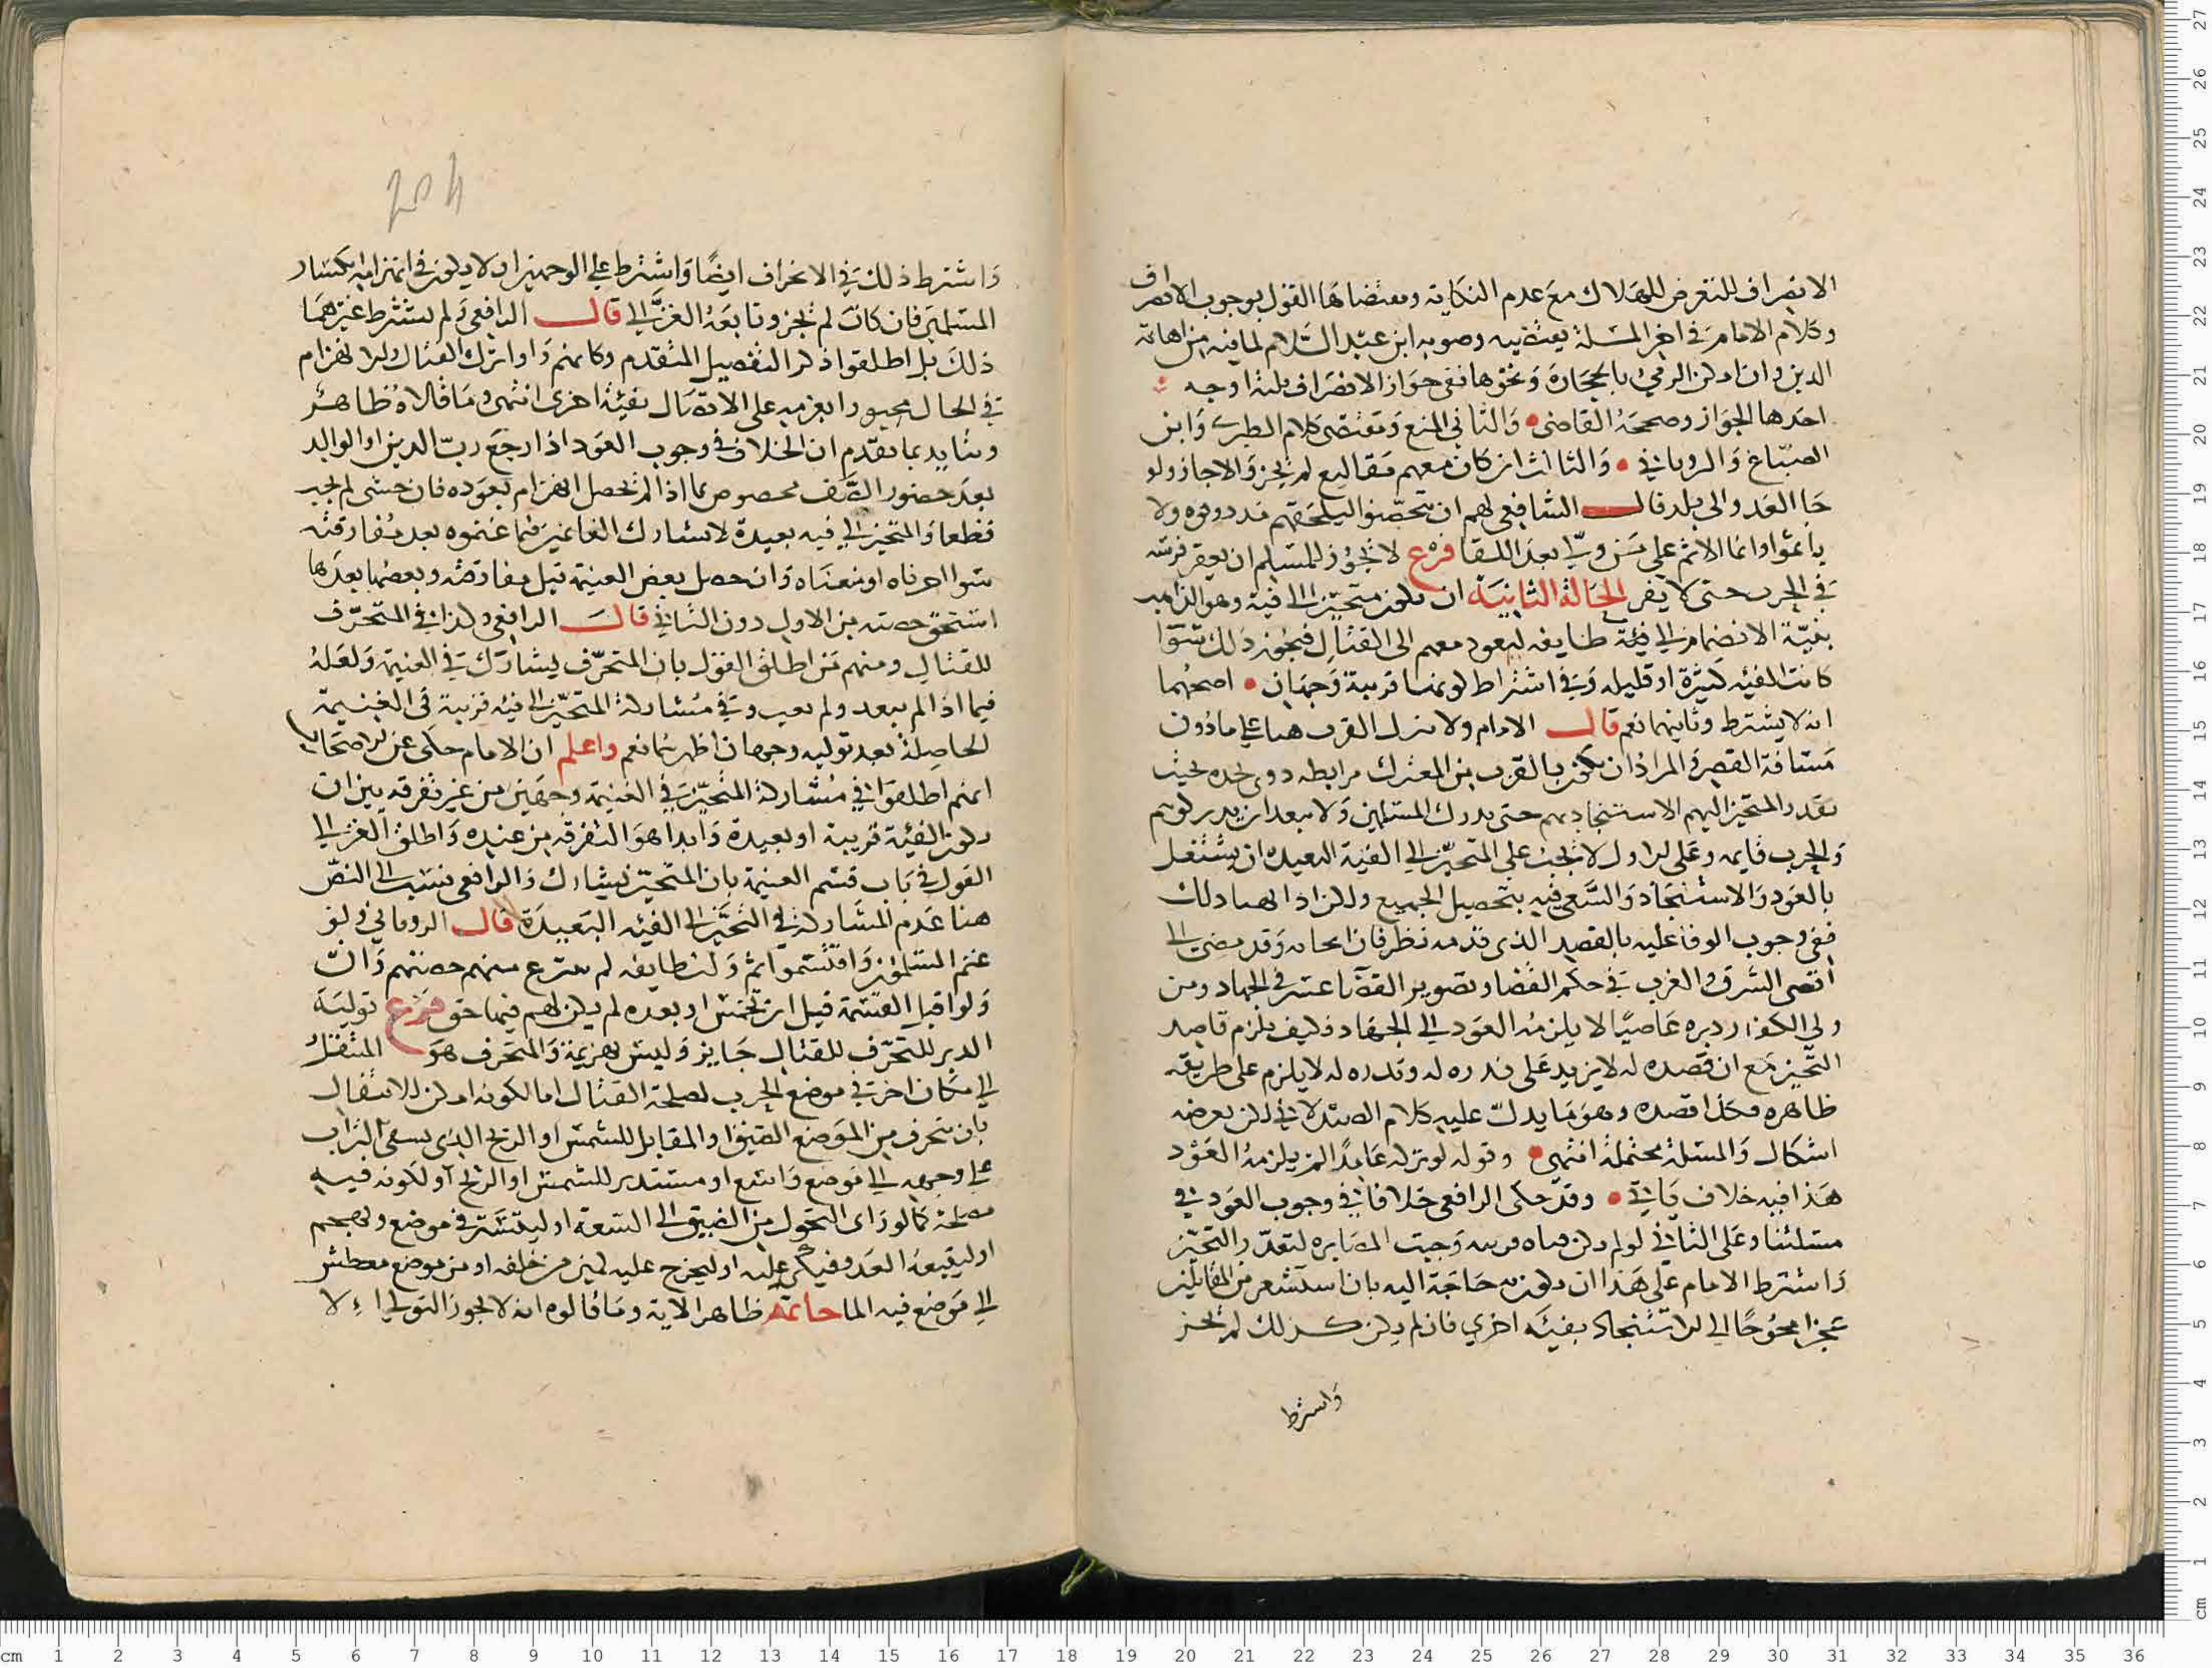 الانصراف للتعرض للهلاك مع عدم النكاية ومقتضاها القول بوجوب الانصراف
وكلام الامام في اخر المسلة يقتضيه وصوبه ابن عبد السلام لما فيه من اهانة
الدين وان امكن الرمي بالحجارة ونحوها ففي جواز الانصراف ثلثة اوجه
احدها الجواز وصححه القاضي والثاني المنع ومقتضى كلام الطبري وابن
الصباغ والروياني والثالث ان كان معهم مقاليع لم يجز والا جاز ولو
جا العدو الى بلد قال الشافعي لهم ان يتحصنوا ليلحقهم مدد وقوه ولا
ياثموا وانما الاثم على من ولى بعد اللقا فرع لا يجوز للمسلم ان يعقر فرسه
في الحرب حتى لا يفر الحالة الثانية ان يكون متحيزا الى فية وهو الذاهب
بنية الانضمام الى فية طايفه ليعود معهم الى القتال فيجوز ذلك سوا
كانت الفيه كثيرة او قليله وفي اشتراط كونها قريبة وجهان اصحهما
انه لا يشترط وثانيهما نعم قال الامام ولا ينزل القرب هنا على ما دون
مسافة القصر والمراد ان يكون بالقرب من المعترك مرابطه ذوى نجده بحيث
يقدر المتحيز اليهم الاستنجاد بهم حتى يدرك المسلمين ولا يبعد ان يدركونهم
والحرب قايمه وعلى الاول لا يجب على المتحيز الى الفية البعيده ان يشتغل
بالعود والاستنجاد والسعي فيه بتحصيل الجميع ولكن اذا
ففي وجوب الوفا عليه بالقصد الذي قدمه نظر فان وقد مضى الى
اقصى الشرق والغرب في حكم القضا وتصوير القضا عسر في الجهاد ومن
ولى الكفار دبره عاصيا لا يلزمه العود الى الجهاد فكيف يلزم قاصد
التحيز مع ان قصده له لا يزيد على نذره له ونذره له لا يلزم على طريقه
ظاهره فكذا قصده وهو ما يدل عليه كلام الصيدلاني لكن يعرضه
اشكال والمسلة محتملة انتهى وقوله لو تركه عامدا لم يلزمه العود
هذا فيه خلاف ياتي وقد حكى الرافعي خلافا في وجوب العود في
مسلتنا وعلى الثاني لو لم يكن هناك قريبه وجبت المصابره لتعذر التحيز
واشترط الامام على هذا ان يكون به حاجة اليه بان استشعر من المقاتلين
عجزا محوجا الى الاستنجاد بفية اخرى فان لم يكن كذلك لم يجز
واشترط
204
واشترط ذلك في الانحراف ايضا واشترط على الوجهين ان لا يكون في انهزامه انكسار
المسلمين فان كان لم يجز وتابعه الغزالي قال الرافعي ولم يشترط غيرهما
ذلك بل اطلقوا ذكر التفصيل المتقدم وكانهم راوا ترك القتال والانهزام
في الحال مجبورا بعزمه على الاتصال بفية اخرى انتهى وما قالاه ظاهر
ويتايد بما تقدم ان الخلاف في وجوب العود اذا رجع رب الدين او الوالد
بعد حضور الصف مخصوص بما اذا لم يحصل انهزام بعوده فان خشى لم يجب
قطعا والمتحيز الى فيه بعيدة لا يشارك الغانمين فيما غنموه بعد مفارقته
سوا اجزناه او منعناه وان حصل بعض الغنيمة قبل مفارقته وبعضها بعدها
استحق حصته من الاول دون الثاني قال الرافعي وكذا في المتحرف
للقتال ومنهم من اطلق القول بان المتحرف يشارك في الغنيمة ولعله
فيما اذا لم يبعد ولم يغيب وفي مشاركة المتحيز الى فيه قريبة في الغنيمة
الحاصلة بعد توليه وجهان اظهرهما نعم واعلم ان الامام حكى عن الاصحاب
انهم اطلقوا في مشاركة المتحيز في الغنيمة وجهين من غير تفرقه بين ان
يكون الفية قريبة او بعيدة وابدا هو التفرقه من عنده واطلق الغزالي
القول في باب قسم الغنيمة بان المتحيز يشارك والرافعي نسب الى النص
هنا عدم المشاركة في التحيز الى الفيه البعيدة قال الروياني ولو
غنم المسلمون واقتسموا ثم ولت طايفه لم ينزع منهم حصتهم وان
ولوا قبل القسمة قبل ان تخمس او بعده لم يكن لهم فيها حق فرع تولية
الدبر للتحرف للقتال جايز وليس هزيمة والمتحرف هو المنتقل
الى مكان اخر في موضع الحرب لمصلحة القتال اما لكونه امكن للانتقال
بان ينحرف من الموضع الضيق او المقابل للشمس او الريح الذي يسفي التراب
على وجهه الى موضع واسع او مستدبر للشمس او الريح او لكونه فيه
مصلحة كما لو راى التحول من الضيق الى السعة او ليستتر في موضع ويهجم
او ليتبعه العدو فيكر عليه او ليخرج عليه كمين من خلفه او من موضع معطش
الى موضع فيه الما خاتمه ظاهر الاية وما قالوه انه لا يجوز التولي الا